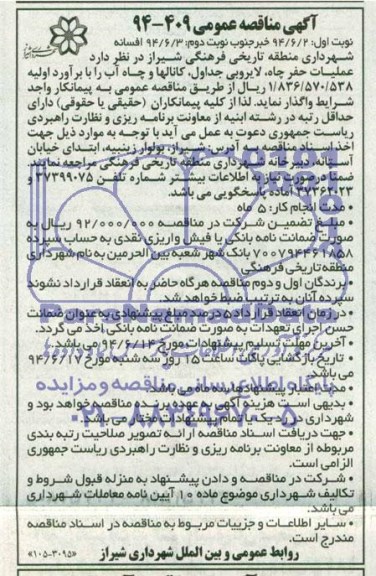 آگهی مناقصه عمومی ۴۰۹-۹۴
نوبت اول: ۹۴/۶/۲ خبرجنوب نوبت دوم: ۹۴/۶/۳ افسانه
شهرداری منطقه تاریخی فرهنگی شیراز در نظر دارد
عملیات حفر چاه، لایروبی جداول، کانالها و چاه آب را با برآورد اولیه
۱/۸۳۶/۵۷۰/۵۳۸ ریال از طریق مناقصه عمومی به پیمانکار واجد
شرایط واگذار نماید. لذا از کلیه پیمانکاران (حقیقی یا حقوقی) دارای
حداقل رتبه در رشته ابنیه از معاونت برنامه ریزی و نظارت راهبردی
ریاست جمهوری دعوت به عمل می آید با توجه به موارد ذیل جهت
اخذ اسناد مناقصه به آدرس: شیراز، بولوار زینبیه، ابتدای خیابان
آستانه، دبیرخانه شهرداری منطقه تاریخی فرهنگی مراجعه نمایند.
ضمنا در صورت نیاز به اطلاعات بیشتر شماره تلفن ۳۷۳۹۹۰۷۵ و
۳۷۳۶۲۰۲۳ آماده پاسخگویی می باشد.
• مدت انجام کار: ۵ ماه
• مبلغ تضمین شرکت در مناقصه ۹۲/۰۰۰/۰۰۰ ریال به
صورت ضمانت نامه بانکی یا فیش واریزی نقدی به حساب سپرده
۷۰۰۷۹۴۴۶۱۸۵۸ بانک شهر شعبه بین الحرمین به نام شهرداری
منطقه تاریخی فرهنگی
• برندگان اول و دوم مناقصه هرگاه حاضر به انعقاد قرارداد نشوند
سپرده آنان به ترتیب ضبط خواهد شد.
• در زمان انعقاد قرارداد ۵ درصد مبلغ پیشنهادی به عنوان ضمانت
حسن اجرای تعهدات به صورت ضمانت نامه بانکی اخذ می گردد.
• آخرین مهلت تسلیم پیشنهادات مورخ ۹۴/۶/۱۴ می باشد.
• تاریخ بازگشایی پاکات ساعت ۱۵ روز سه شنبه مورخ ۹۴/۶/۱۷
می باشد.
• مدت اعتبار پیشنهادها سه ماه می باشد.
• بدیهی است هزینه آگهی به عهده برنده مناقصه خواهد بود و
شهرداری در رد یک یا تمام پیشنهادات مختار می باشد.
• جهت دریافت اسناد مناقصه ارائه تصویر صلاحیت رتبه بندی
مربوطه از معاونت برنامه ریزی و نظارت راهبردی ریاست جمهوری
الزامی است.
• شرکت در مناقصه و دادن پیشنهاد به منزله قبول شروط و
تکالیف شهرداری موضوع ماده ۱۰ آیین نامه معاملات شهرداری
می باشد.
• سایر اطلاعات و جزییات مربوط به مناقصه در اسناد مناقصه
مندرج است.
روابط عمومی و بین الملل شهرداری شیراز «۱۰۵-۳۰۹۵»
پایگاه اطلاع رسانی مناقصه و مزایده
۰۲۱-۸۸۳۴۹۶۷۰-۵